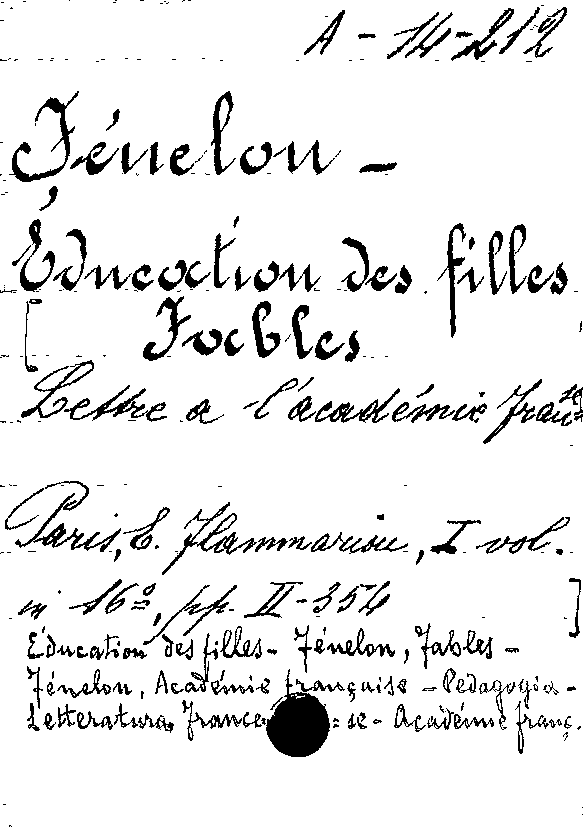 A - 14-212
Fénelon -
Éducation des filles
[ Fables
Lettre a l'académie fran.se
Paris, E. Flammarion, I vol.
in 16º, pp. II-354 ]
Education des filles - Fénelon, Fables -
Fénelon, Académie française - Pedagogia -
Letteratura France = se - Académie franç.